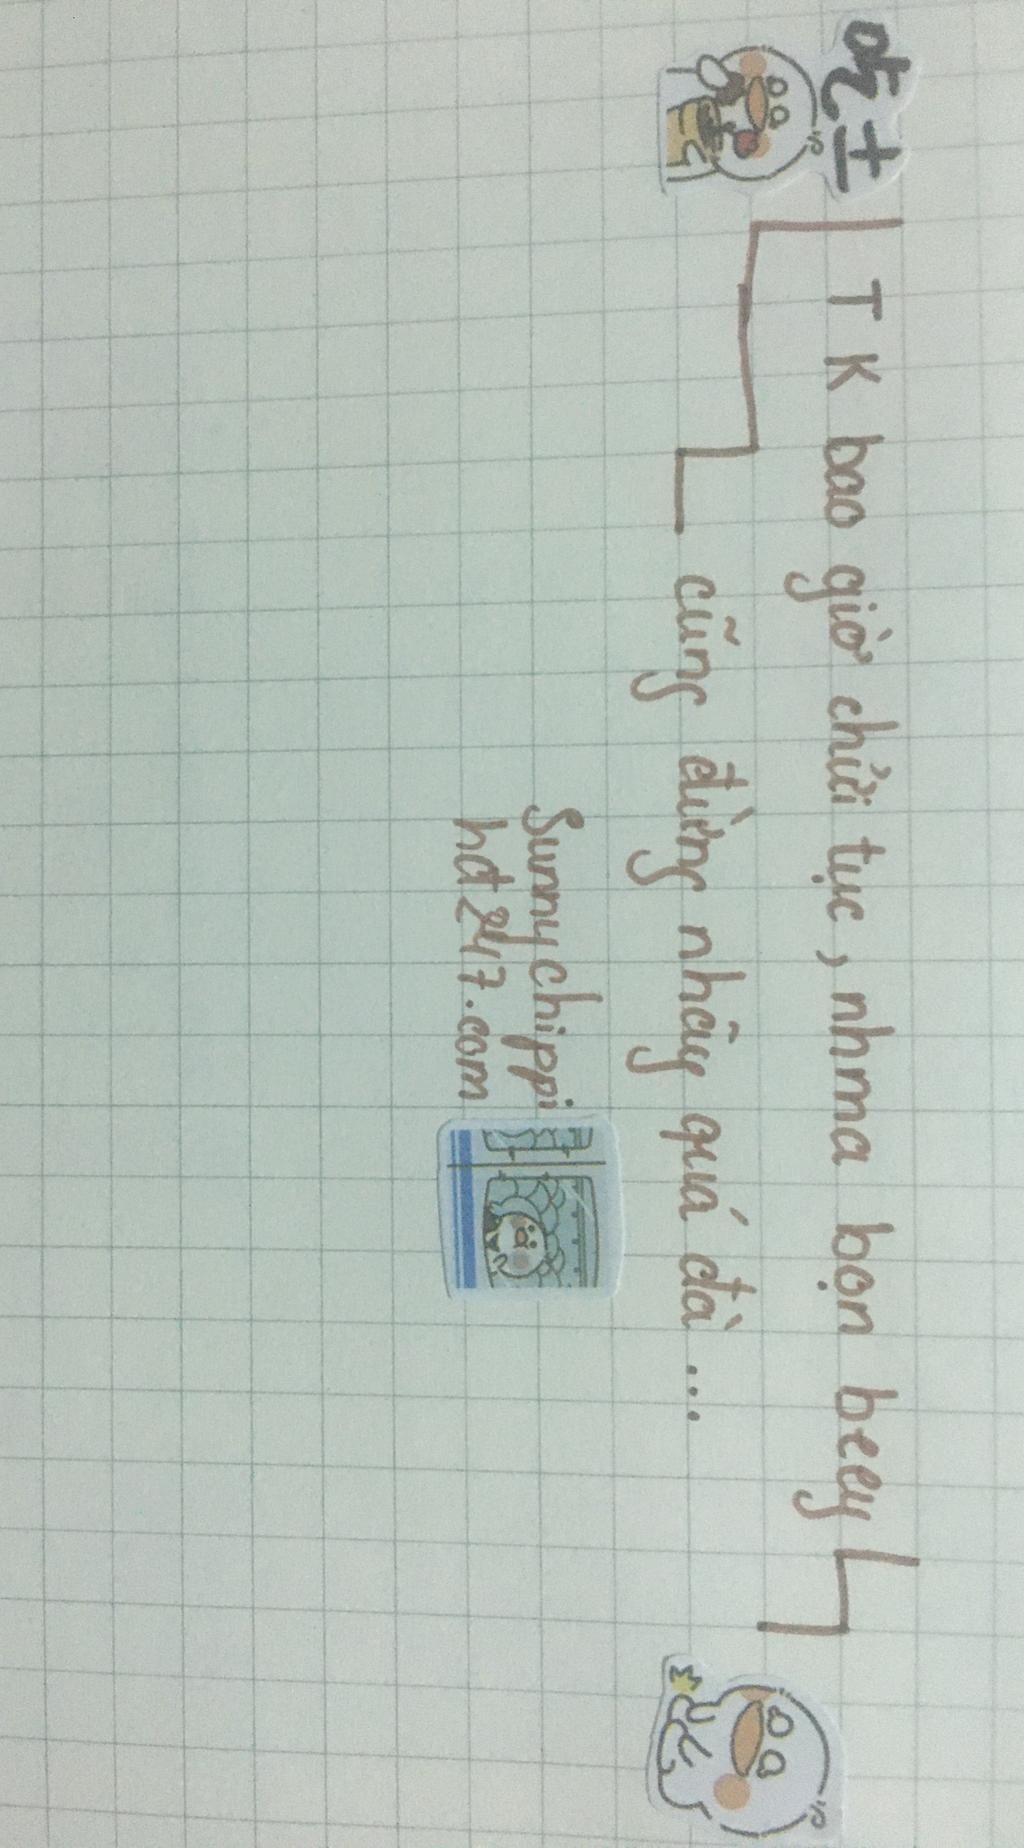 吃土
T K bao giờ chửi tục, nhma bọn beey
cũng đừng nhây quá đà...
Sunnychippi
hd247.com